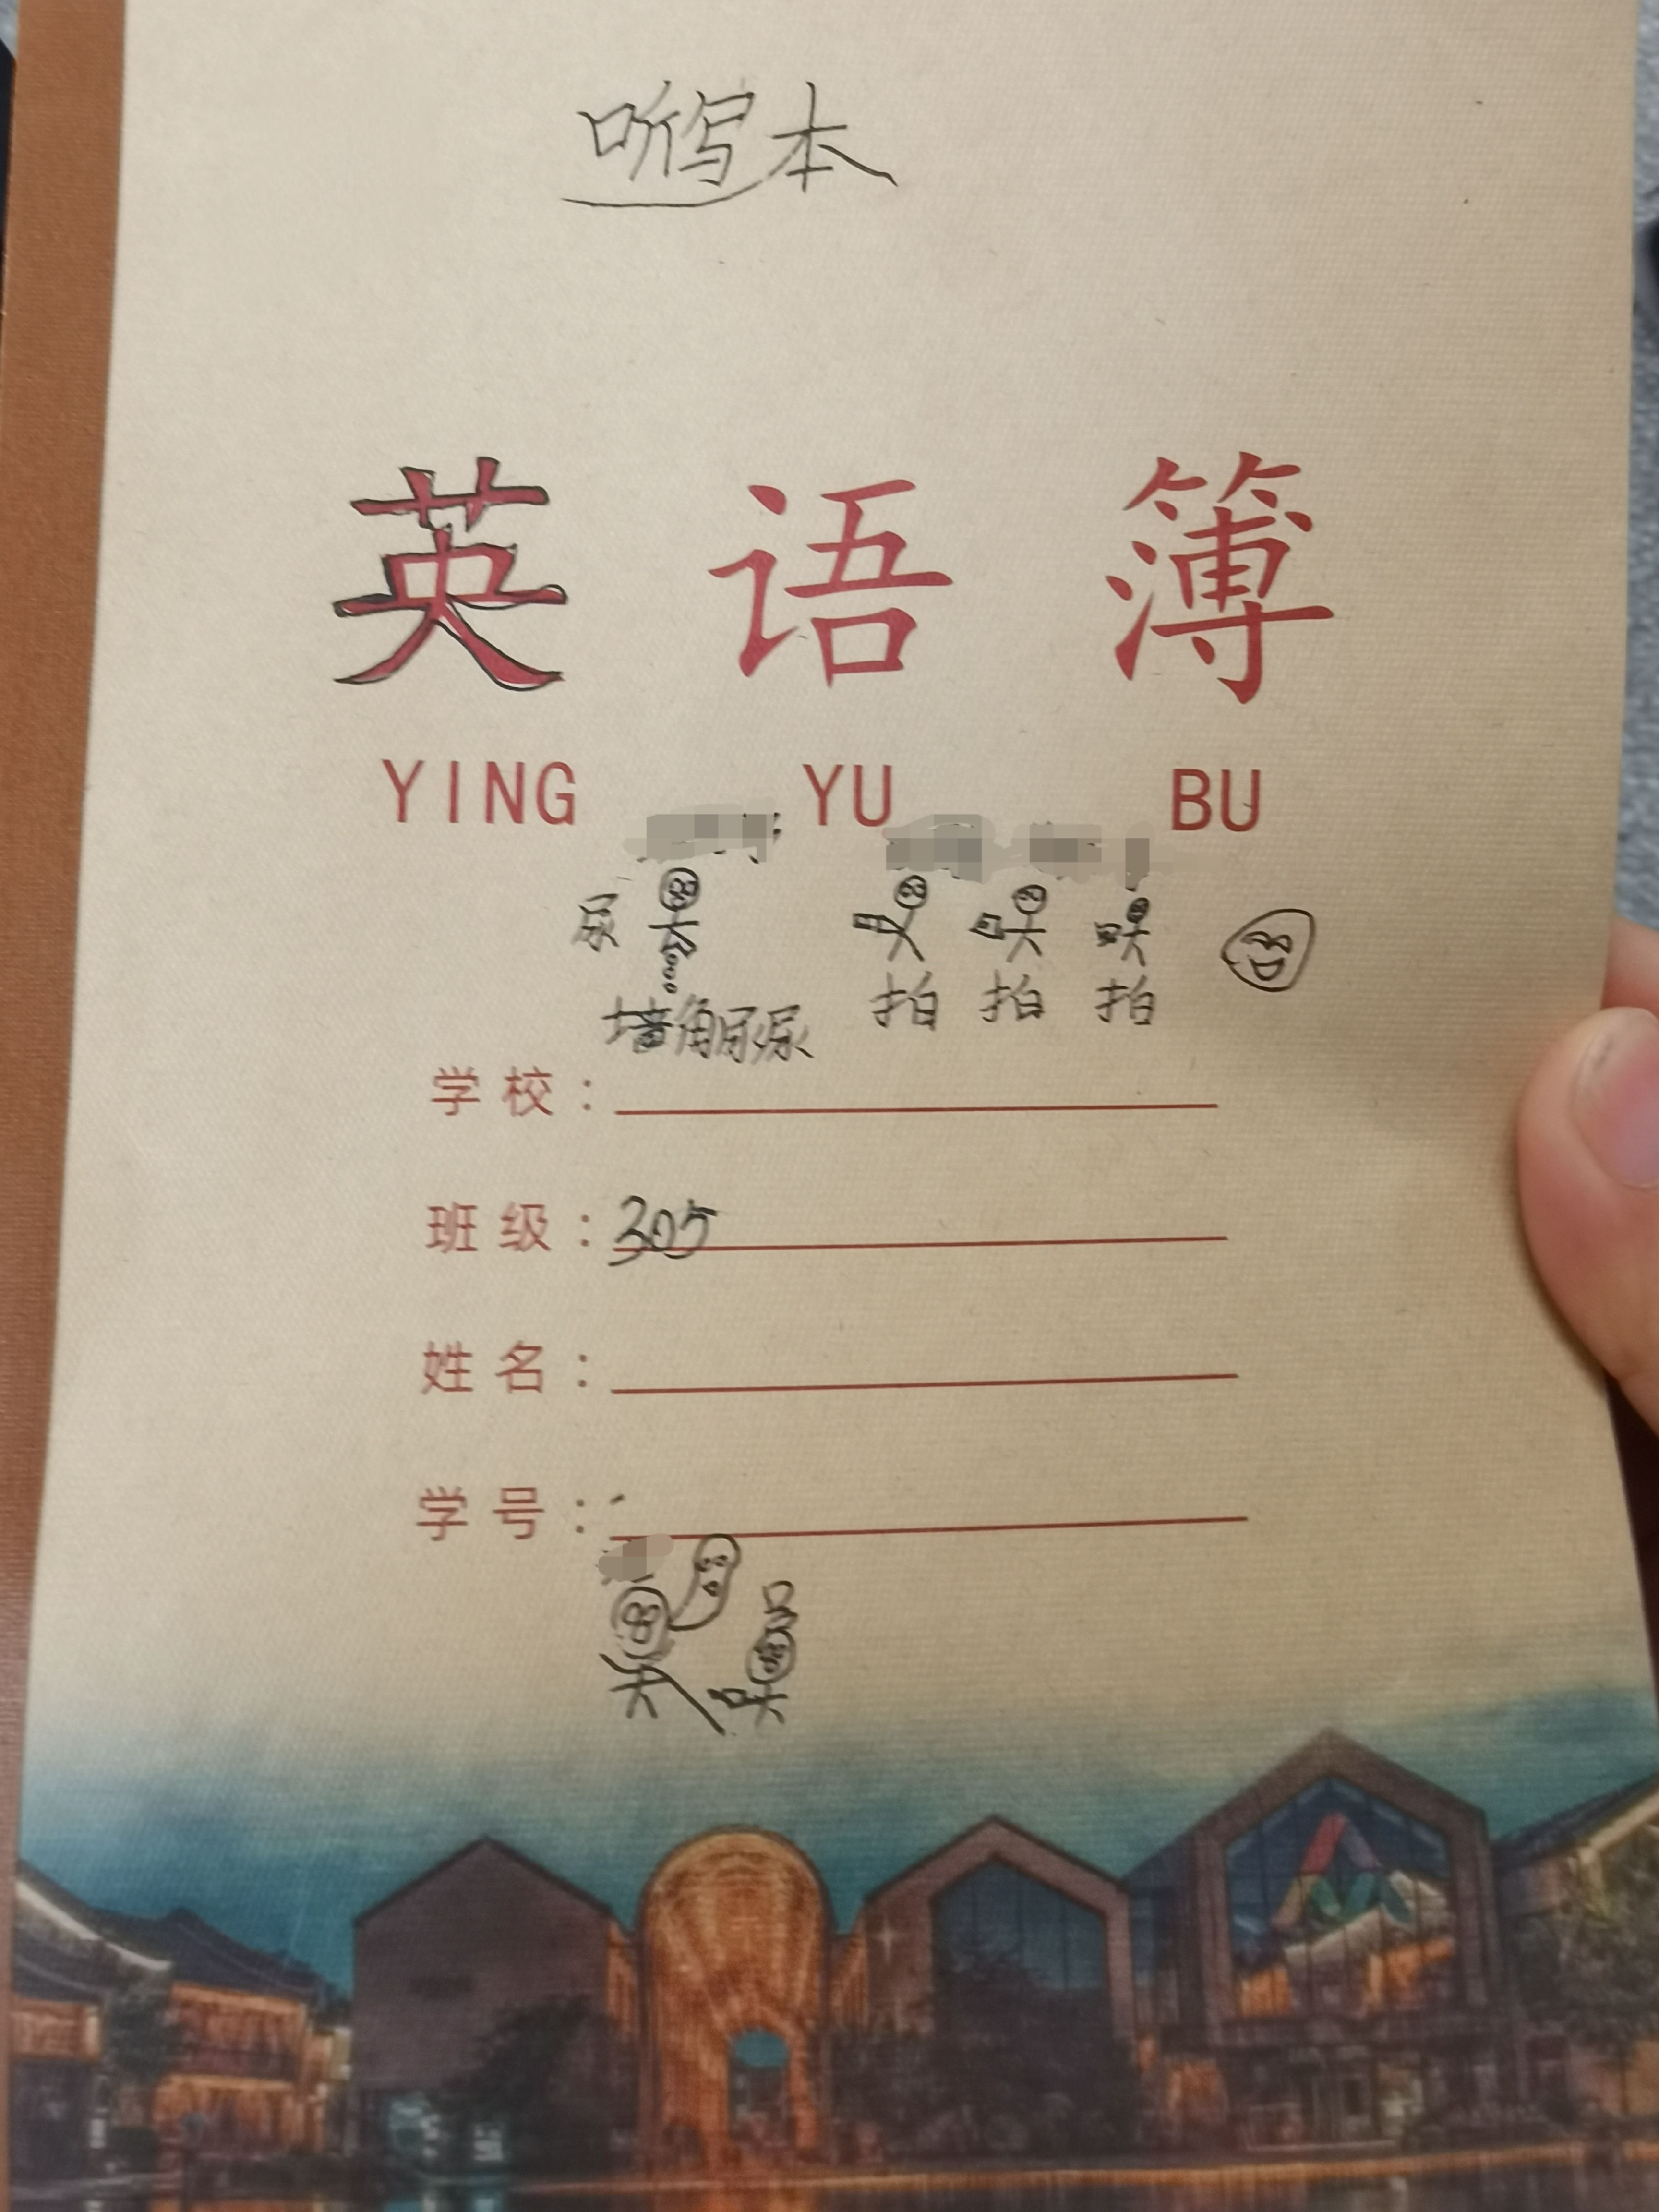 听写本
英语簿
YING YU BU
尿
墙角尿尿 拍 拍 拍
学校：
班级：305
姓名：
学号：